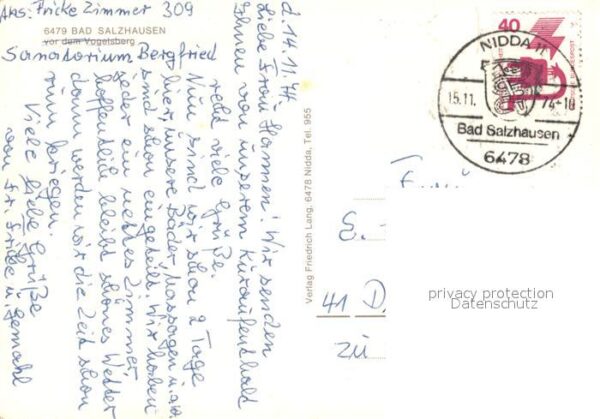 Abs: Fricke Zimmer 309
6479 BAD SALZHAUSEN
vor dem Vogelsberg
Sanatorium Bergfried
d. 14.11.74
Liebe Frau Hannen! Wir senden
Ihnen von unserem Kuraufenthalt
recht viele Grüße.
Nun sind wir schon 2 Tage
hier, unsere Bäder Massagen u.a.
sind schon eingeteilt. Wir haben
jeder ein nettes Zimmer,
hoffentlich bleibt schönes Wetter
dann werden wir die Zeit schon
rum kriegen.
Viele liebe Grüße
von Fr. Fricke u. Gemahl
Verlag Friedrich Lang, 6478 Nidda, Tel. 955
40
NIDDA 11
15.11. 74-10
Bad Salzhausen
6478
E.
41 D
zu
privacy protection
Datenschutz